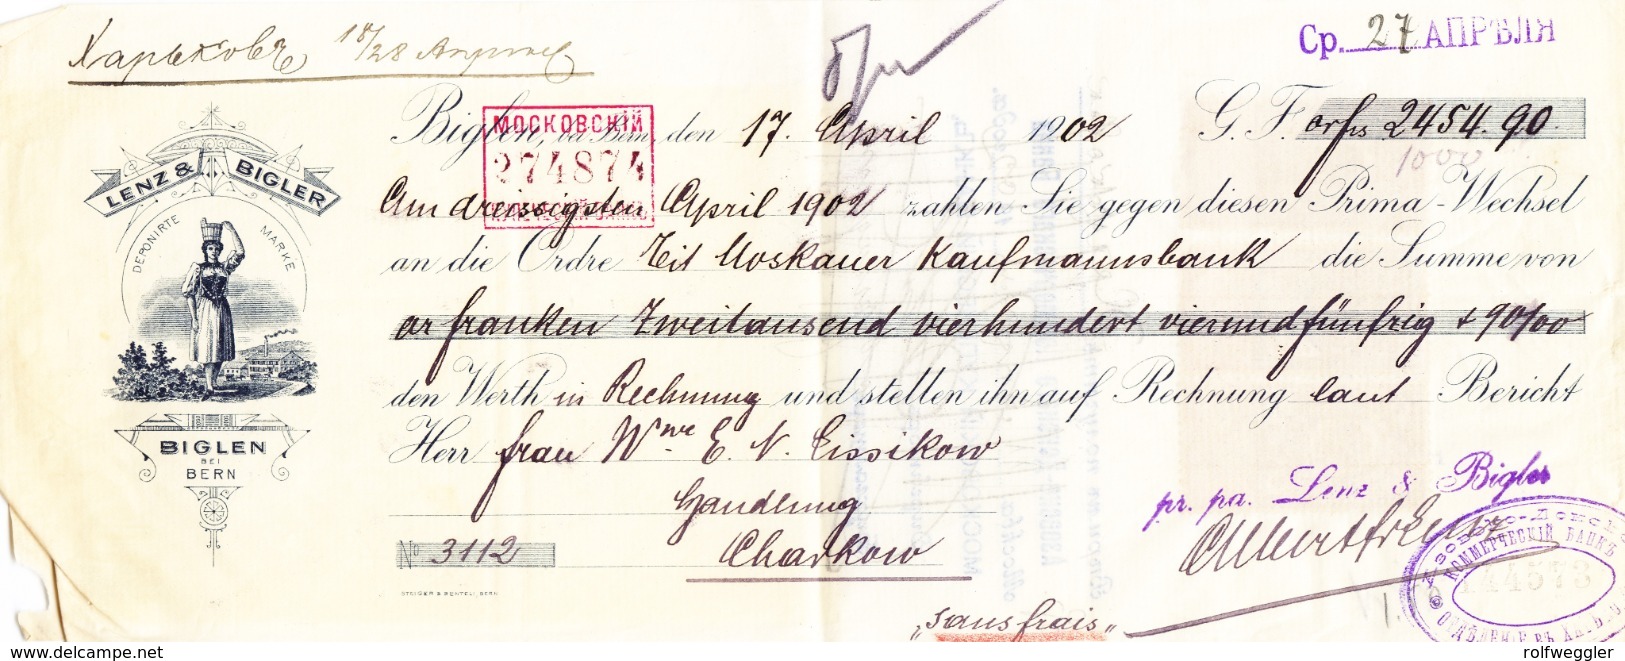 Харьковъ 18/28 Апрѣля
Ср. 27 АПРѢЛЯ
LENZ & BIGLER
DEPONIRTE MARKE
BIGLEN
BEI
BERN
Biglen, bei Bern, den 17. April 1902 G. F. or frs 2454.90
1000
МОСКОВСКІЙ
274874
Am dreissigsten April 1902 zahlen Sie gegen diesen Prima-Wechsel
an die Ordre Tit Moskauer Kaufmannsbank die Summe von
or franken Zweitausend vierhundert vierundfünfzig + 90/00
den Werth in Rechnung und stellen ihn auf Rechnung laut Bericht
Herr frau Wwe E. N. Lissikow
Handlung
Charkow
No 3112
STEIGER & BENTELI, BERN
pr. pa. Lenz & Bigler
Азовско-Донской
КОММЕРЧЕСКІЙ БАНКЪ
44573
ОТДѢЛЕНІЕ ВЪ
„sans frais"
www.delcampe.net
rolfweggler